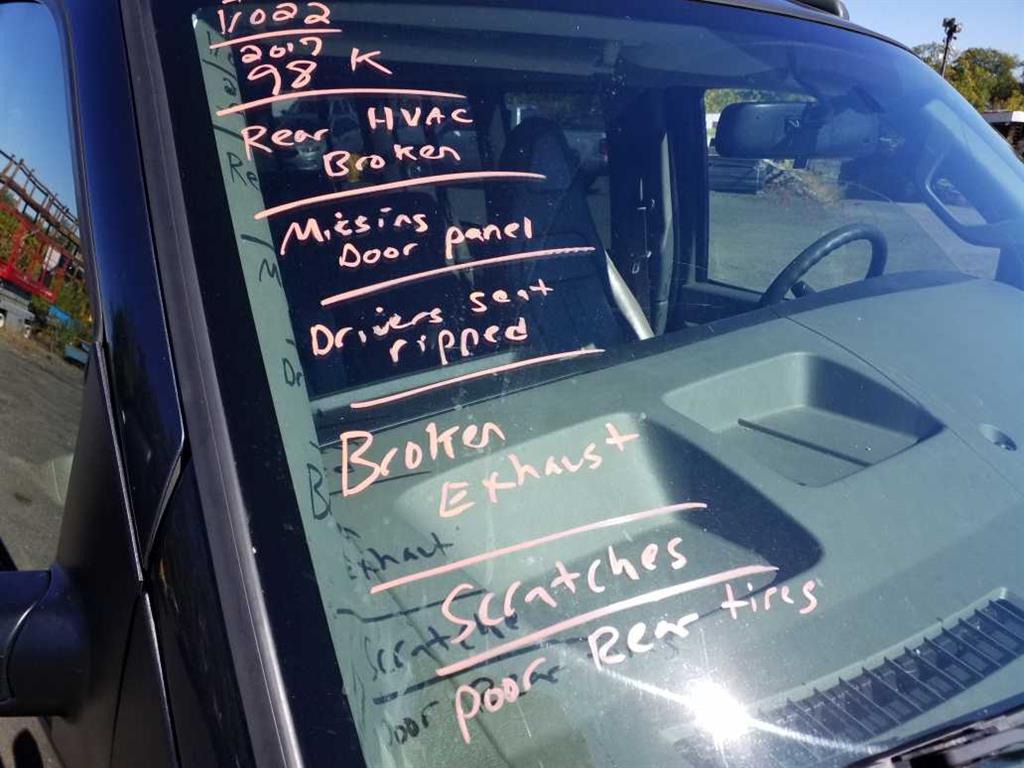 11022
2017
98 K
Rear HVAC
Broken
Missing
Door panel
Drivers seat
ripped
Broken
Exhaust
Scratches
Poor Rear tires